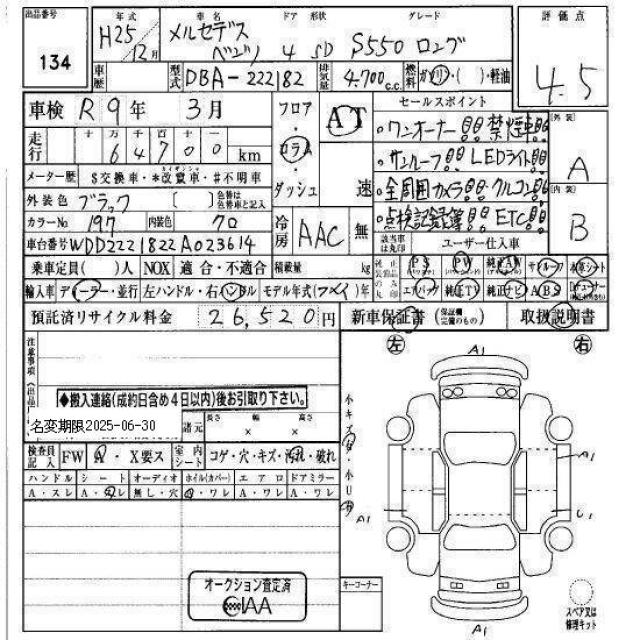 出品番号 年式 車名 ドア 形状 グレード 評価点
134 H25/12月 メルセデスベンツ 4 SD S550 ロング 4.5
車歴 型式 DBA-222182 排気量 4.700c.c. 燃料 ガソリン・( )・軽油
車検 R9年 3月 フロア AT セールスポイント
走行 十 万 千 百 十 一
64700 km コラム 。ワンオーナー!!禁煙車!! 外装 A
。サンルーフ!!LEDライト!!
メーター歴 $交換車・*改ザン車・#不明車 ダッシュ 速 。全周囲カメラ!!クルコン!!
外装色 ブラック [ ] 色替は色替車と記入 内装 B
カラーNo 197 内装色 70 冷房 AAC 無 。点検記録簿!!ETC!!
車台番号 WDD2221822A023614 該当車は丸印 ユーザー仕入車
乗車定員( )人 NOX 適合・不適合 積載量 kg 純正装備品のみ丸印 PS PW 純正AW サンルーフ 本革シート
輸入車 ディーラー・並行 左ハンドル・右ハンドル モデル年式(   )年 エアバック 純正(TV) 純正ナビ ABS
預託済リサイクル料金 26,520円 新車保証書(保証欄完備のもの) 取扱説明書
注意事項(出品店) 左 右
A1
◆搬入連絡(成約日含め4日以内)後お引取り下さい。
名変期限2025-06-30 諸元 長さ 幅 高さ
× ×
小キズ・小U
検査員記入 FW A・X要ス 室内シート コゲ・穴・キズ・汚れ・破れ
ハンドル シート オーディオ ホイル(カバー) エアロ ドアミラー
A・スレ A・スレ 無し・穴 A・ワレ A・ワレ A・ワレ
A1
A1
U1
オークション査定済
IAA
キーコーナー
スペア又は修理キット
A1